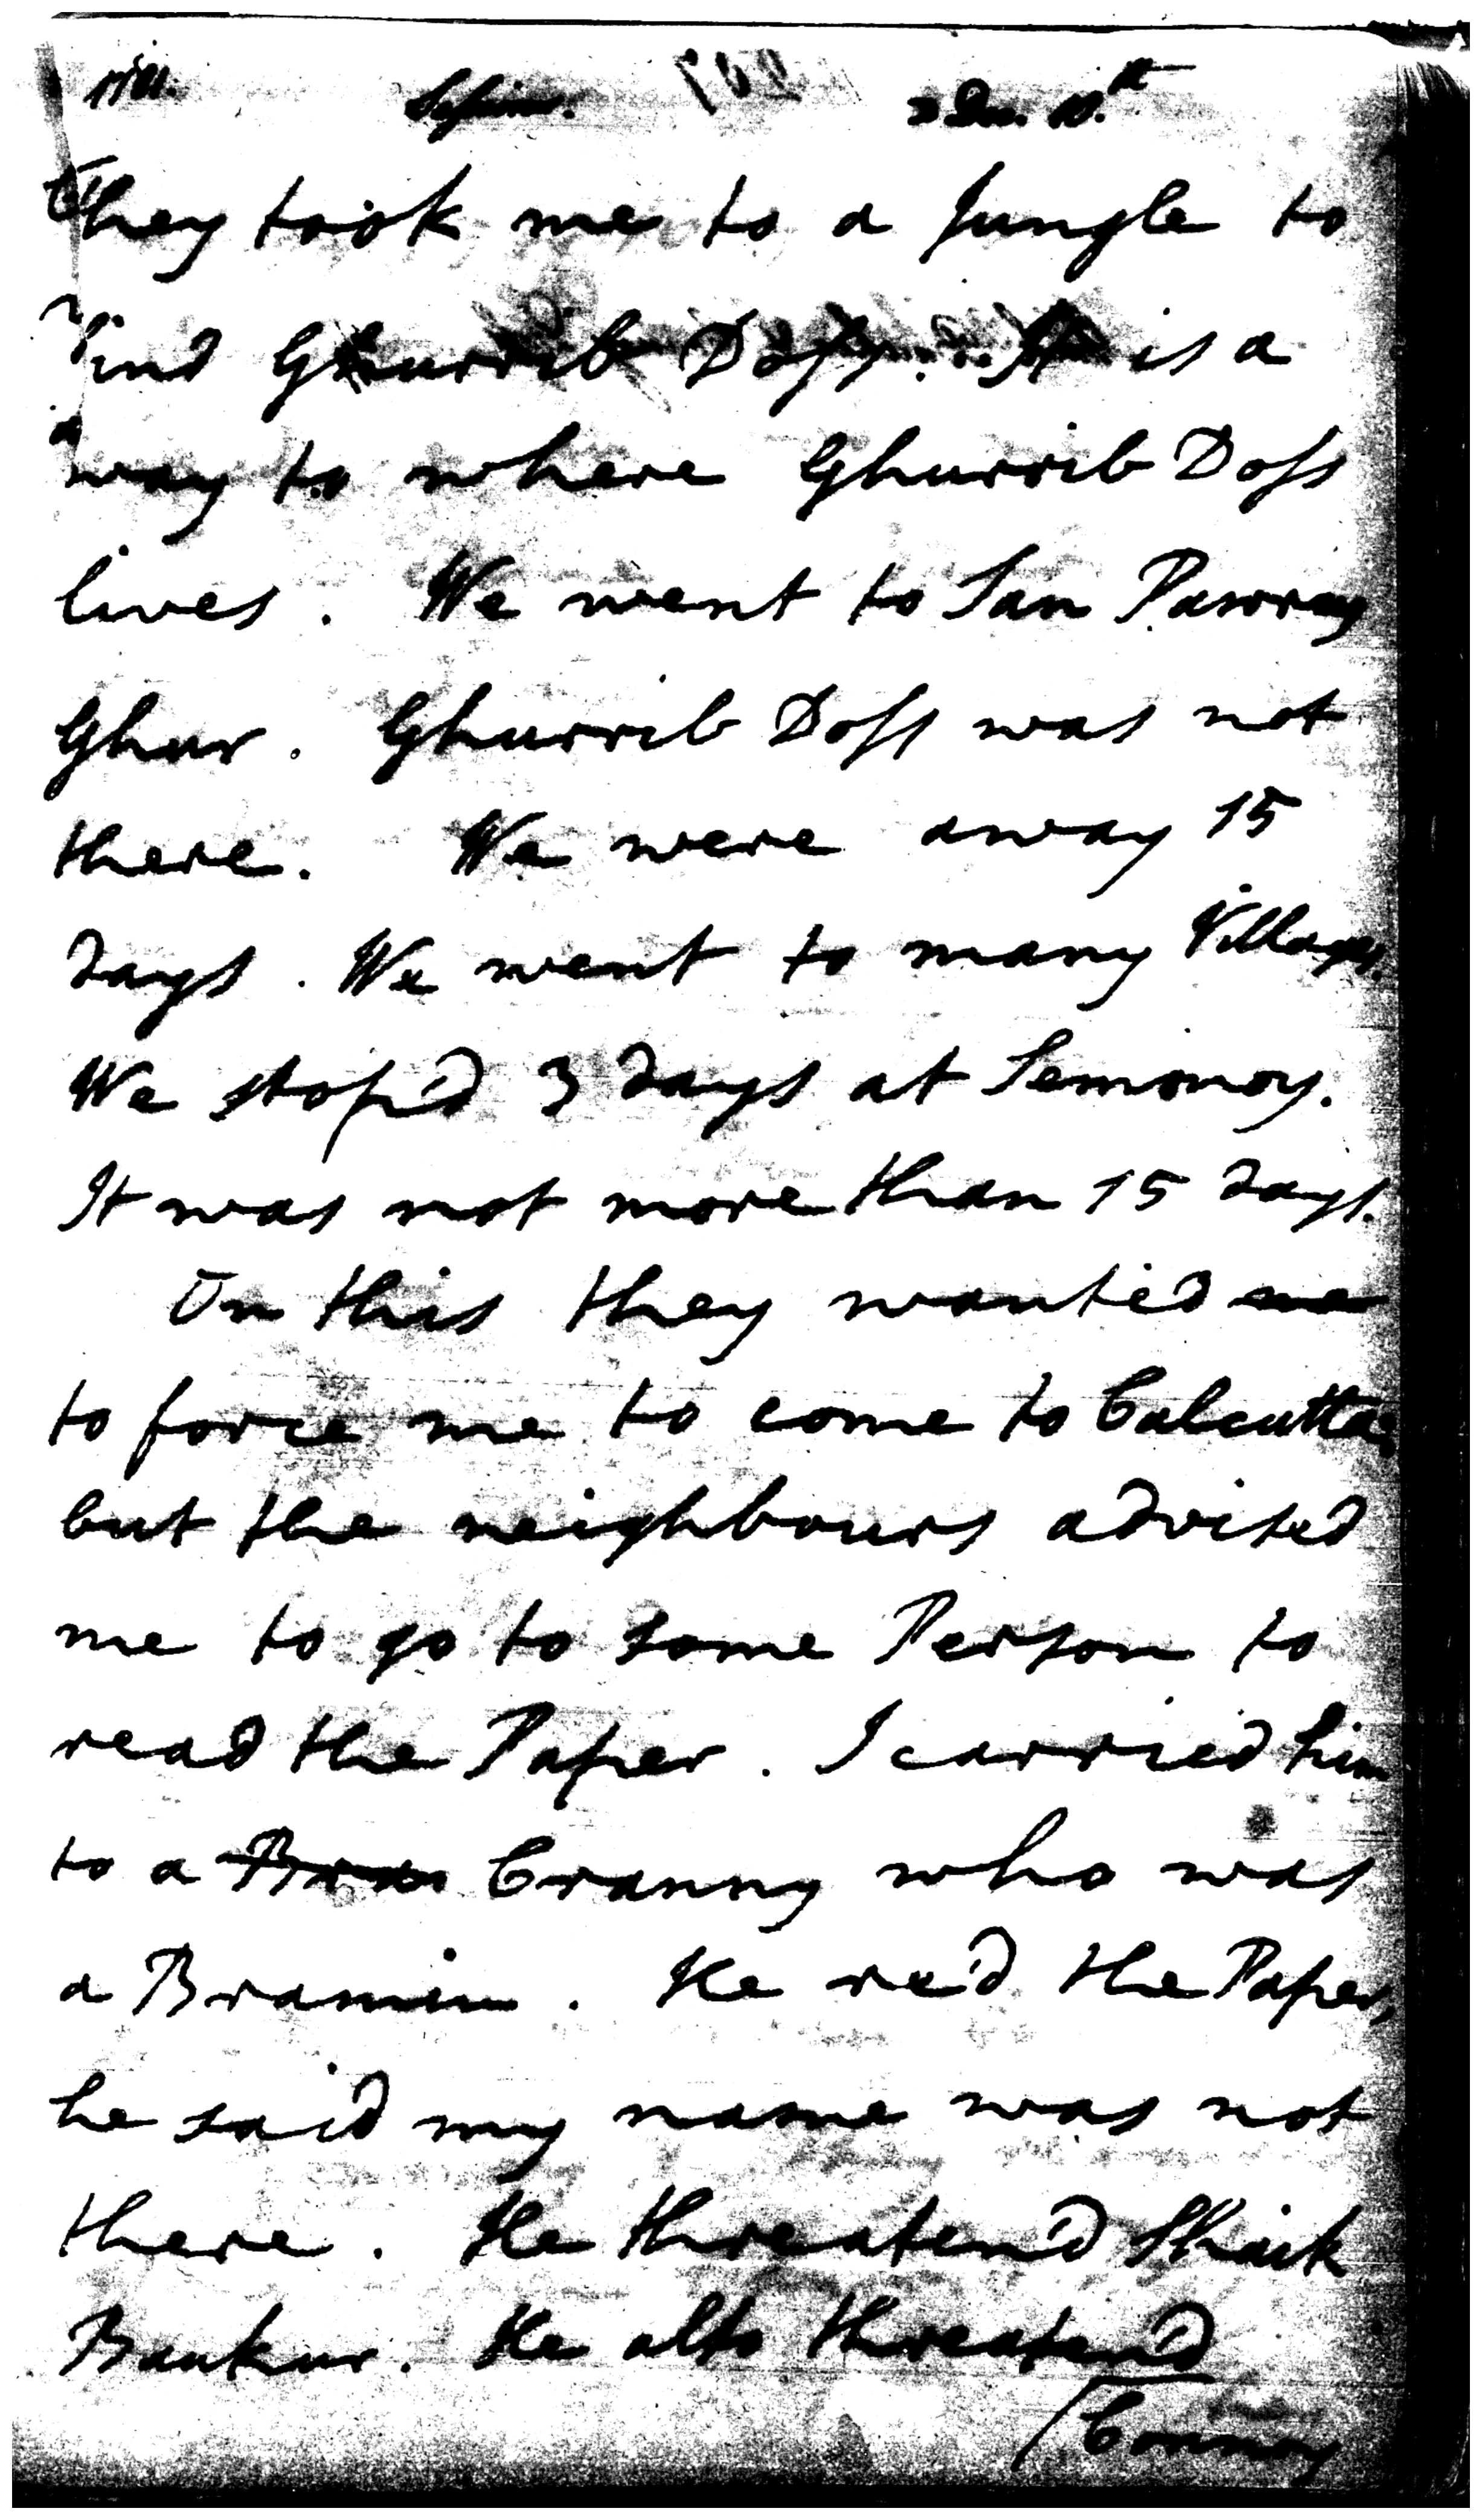 Dec. 10.th
They took me to a Jungle to
find Ghurrib Doss. It is a
way to where Ghurrib Doss
lives. We went to
Ghur. Ghurrib Doss was not
there. We were away 15
days. We went to many Villages.
We stop'd 3 days at Semonoy.
It was not more than 15 days.
On this they wanted me
to force me to come to Calcutta;
but the neighbours advised
me to go to some Person to
read the Paper. I carried him
to a Bram Cranny who was
a Bramin. He re'd the Paper,
he said my name was not
there. He threaten'd Shaik
Baukur. He also threaten'd